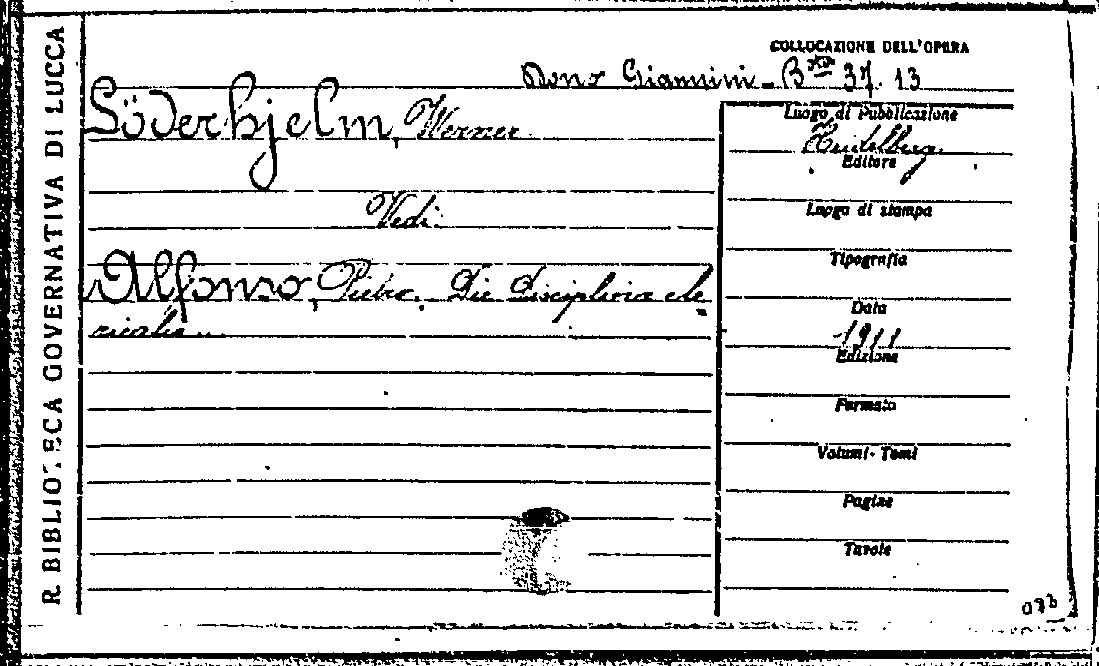 R. BIBLIOTECA GOVERNATIVA DI LUCCA
COLLOCAZIONE DELL'OPERA
Dono Giannini - B.ta 37. 13
Söderhjelm, Werner
Vedi
Alfonso, Pietro. Die Disciplina cle-
ricalis...
Luogo di Pubblicazione
Heidelberg
Editore
Luogo di stampa
Tipografia
Data
1911
Edizione
Formato
Volumi-Tomi
Pagine
Tavole